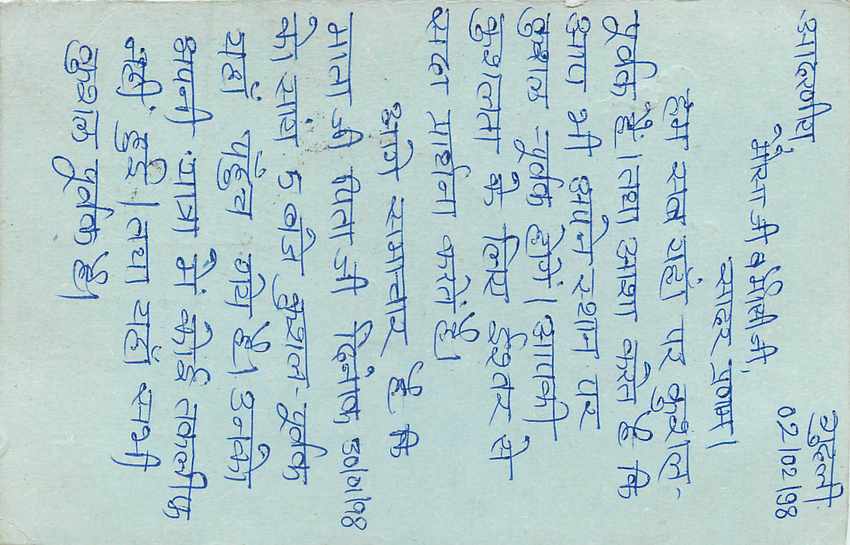 गुदली
02/02/98
आदरणीय
मौसा जी व मौसी जी,
सादर प्रणाम।
हम सब यहां पर कुशल-
पूर्वक हैं। तथा आशा करते हैं कि
आप भी अपने स्थान पर
कुशल पूर्वक होगें। आपकी
कुशलता के लिए ईश्वर से
सदा प्रार्थना करते हैं।
आगे समाचार है कि
माता जी पिता जी दिनांक 30/01/98
को सांय 5 बजे कुशल-पूर्वक
यहां पहुंच गये हैं। उनको
अपनी यात्रा में कोई तकलीफ
नहीं हुई। तथा यहां सभी
कुशल पूर्वक हैं।